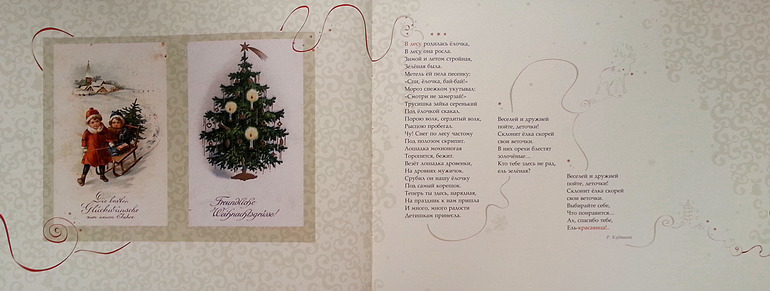 Die besten
Glückwünsche
zum neuen Jahre
Freundliche
Weihnachtsgrüsse!
***
В лесу родилась ёлочка,
В лесу она росла.
Зимой и летом стройная,
Зелёная была.
Метель ей пела песенку:
«Спи, ёлочка, бай-бай!»
Мороз снежком укутывал:
«Смотри не замерзай!»
Трусишка зайка серенький
Под ёлочкой скакал.
Порою волк, сердитый волк,
Рысцою пробегал.
Чу! Снег по лесу частому
Под полозом скрипит.
Лошадка мохноногая
Торопится, бежит.
Везёт лошадка дровенки,
На дровнях мужичок.
Срубил он нашу ёлочку
Под самый корешок.
Теперь ты здесь, нарядная,
На праздник к нам пришла
И много, много радости
Детишкам принесла.
Веселей и дружней
пойте, деточки!
Склонит ёлка скорей
свои веточки.
В них орехи блестят
золочёные...
Кто тебе здесь не рад,
ель зелёная?
Веселей и дружней
пойте, деточки!
Склонит ёлка скорей
свои веточки.
Выбирайте себе,
Что понравится...
Ах, спасибо тебе,
Ель-красавица!..
Р. Кудашева